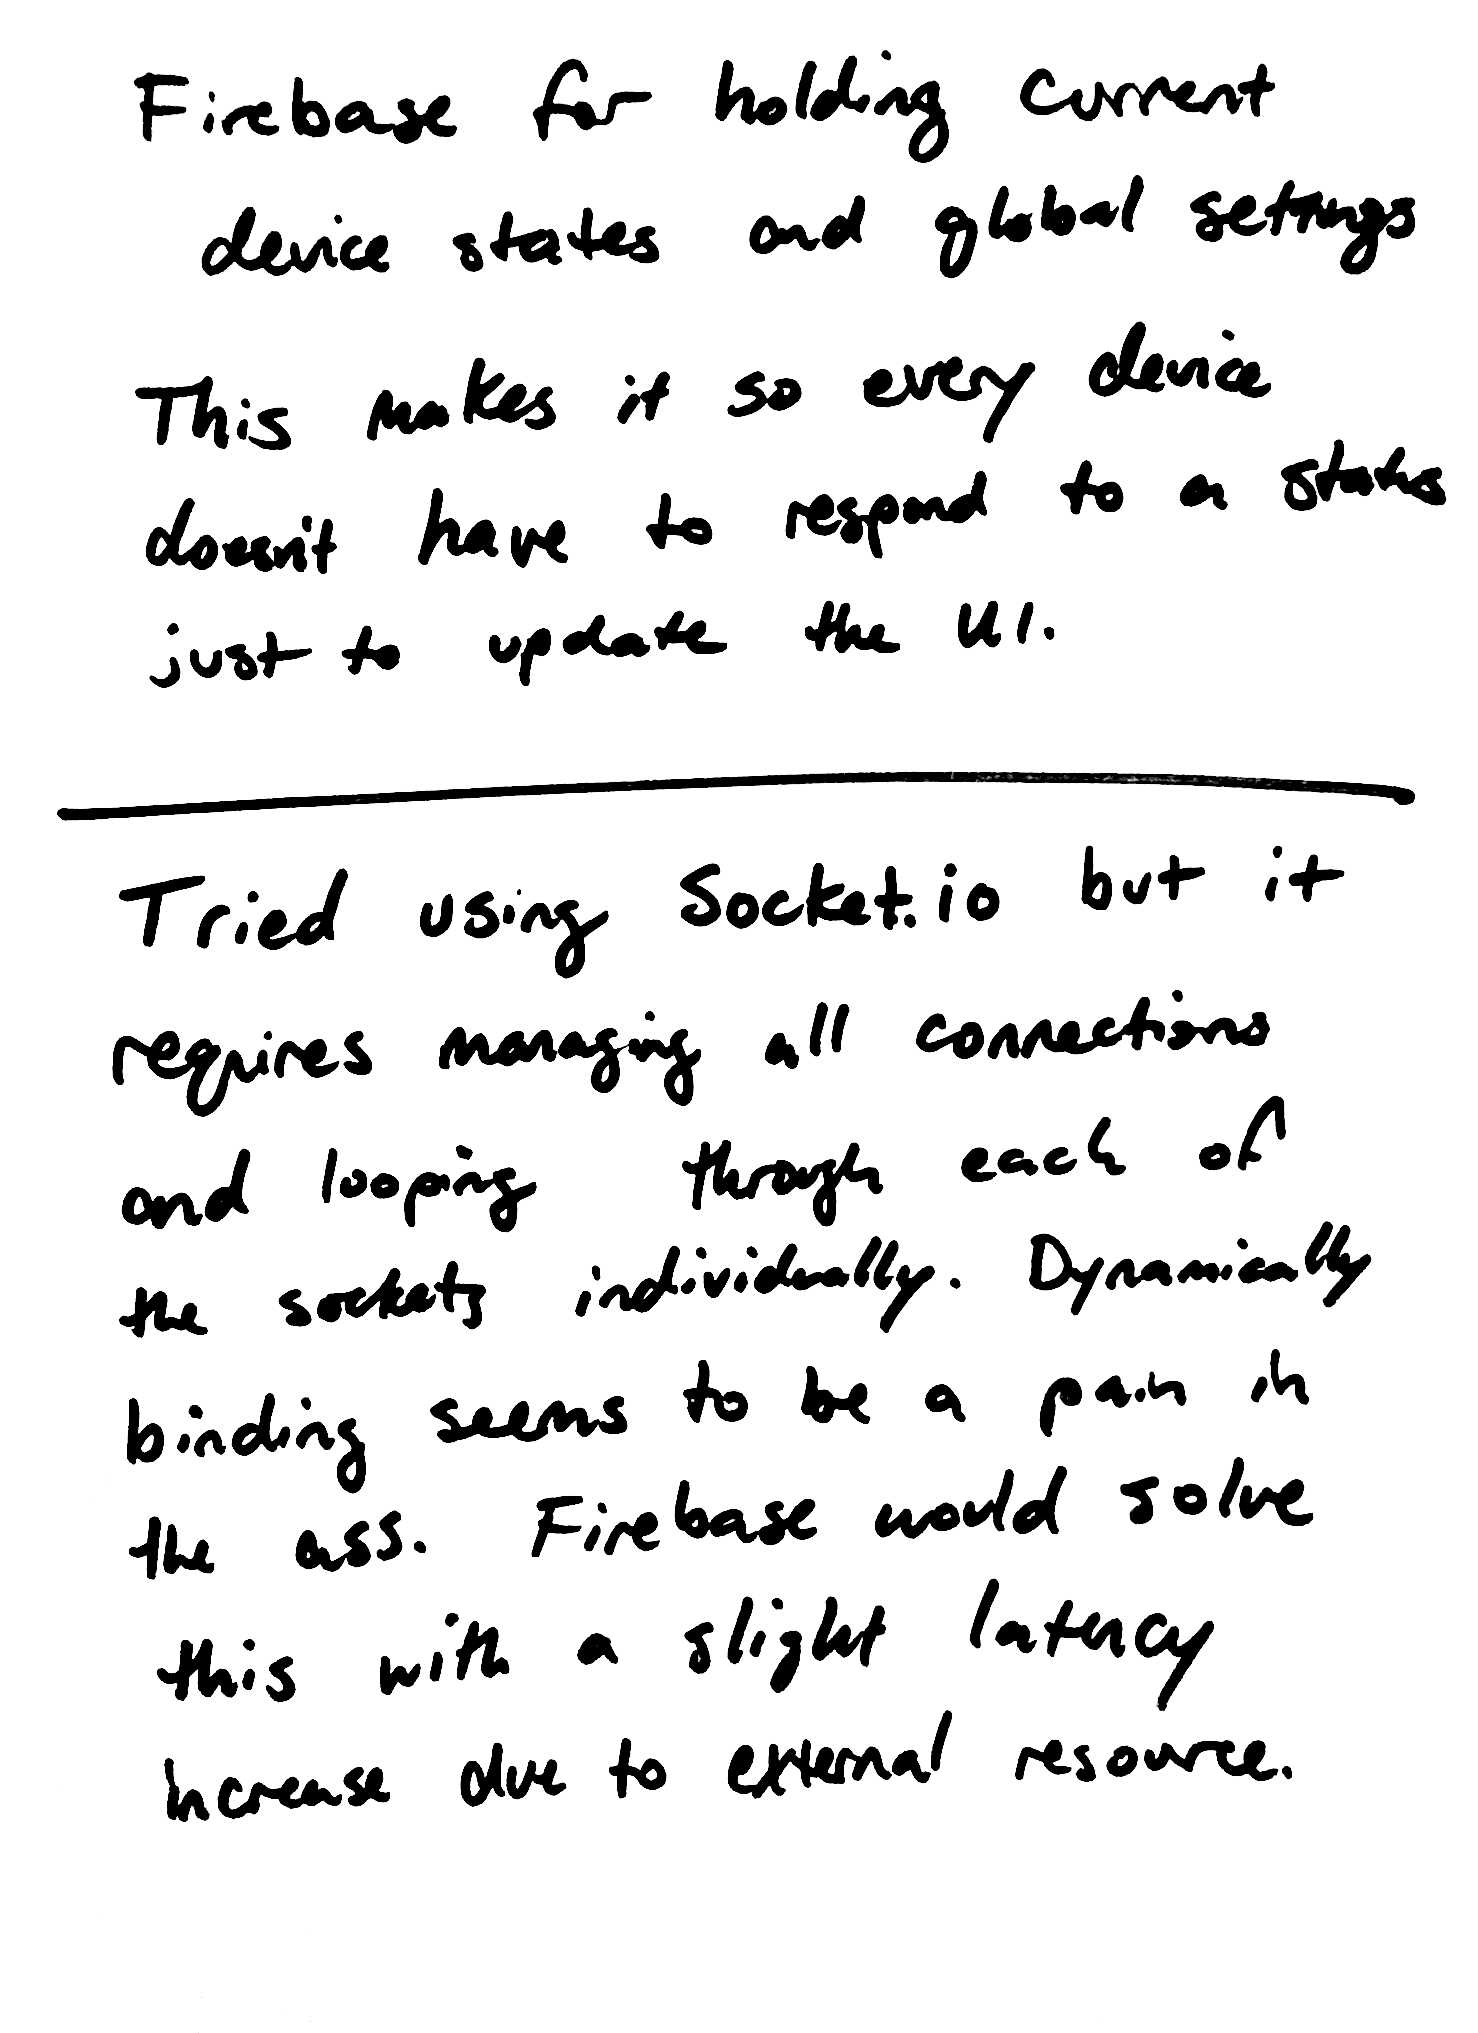 Firebase for holding current
device states and global settings
This makes it so every device
doesn't have to respond to a status
just to update the UI.
Tried using Socket.io but it
requires managing all connections
and looping through each of
the sockets individually. Dynamically
binding seems to be a pain in
the ass. Firebase would solve
this with a slight latency
increase due to external resource.